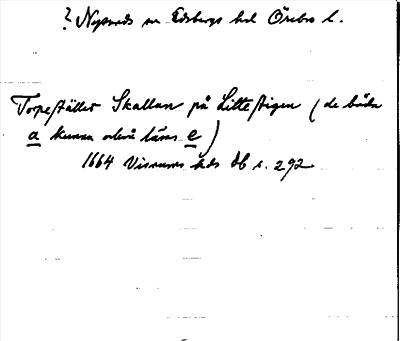 ? Nysunds sn Edsbergs hd Örebro l.
Torpestället Skallan på Lillestigen (de båda
a kunna också läsas e)
1664 Visnums hds Db s. 292